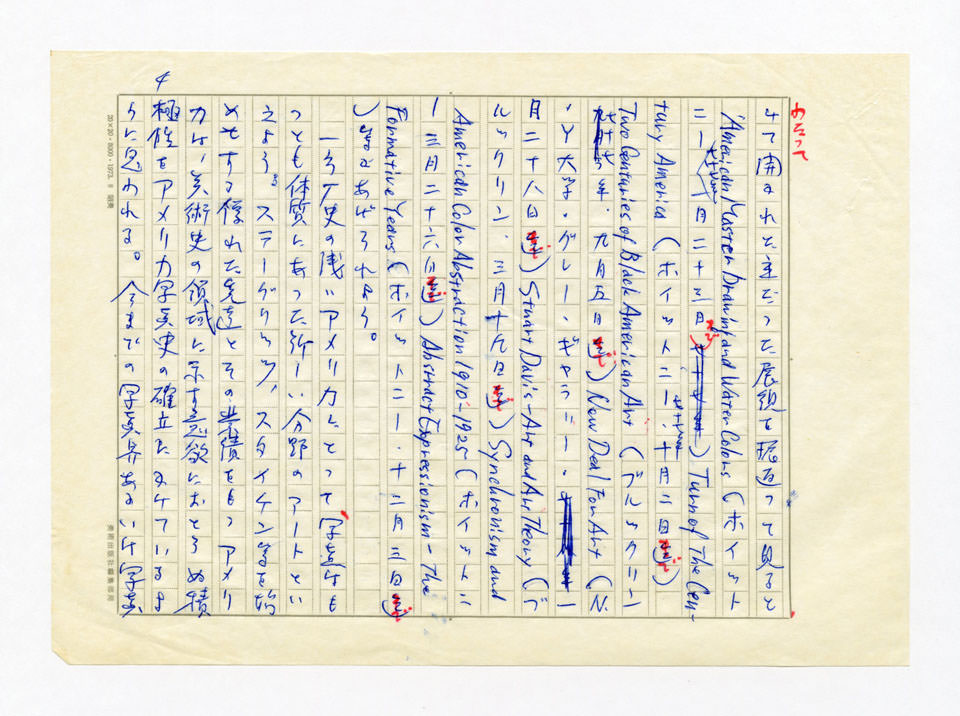 4
わたって
みて開かれた主だった展観を振返って見ると
"American Master Drawing and Water Colors (ホイット
ニー 月二十三日まで) Turn of The Cen-
tury America (ホイットニー・七十七年十月二日迄)
Two Centuries of Black American Art (ブルックリン
七十七年・九月五日迄) New Deal For Art (N.
・Y大学・グレー・ギャラリー・一
月二十八日迄) Stuart Davis - Art and Art Theory (ブ
ルックリン・三月十九日迄) Synchronism and
American Color Abstraction 1910-1925 (ホイットニ
ー三月二十六日迄) Abstract Expressionism - The
Formative Years (ホイットニー・十二月三日迄
) 等があげられよう。
一方歴史の浅いアメリカにとって写真は、も
っとも体質にあった新しい分野のアートとい
えよう。スティーグリッツ、スタイケン等を始
めとする優れた先達とその業績をもつアメリ
カは、美術史の領域に示す意欲におとらぬ積
極性をアメリカ写真史の確立にみけているよ
うに思われる。今までの写真界あるいは写真
20×20・8000・1973. 9
美術出版社編集部用